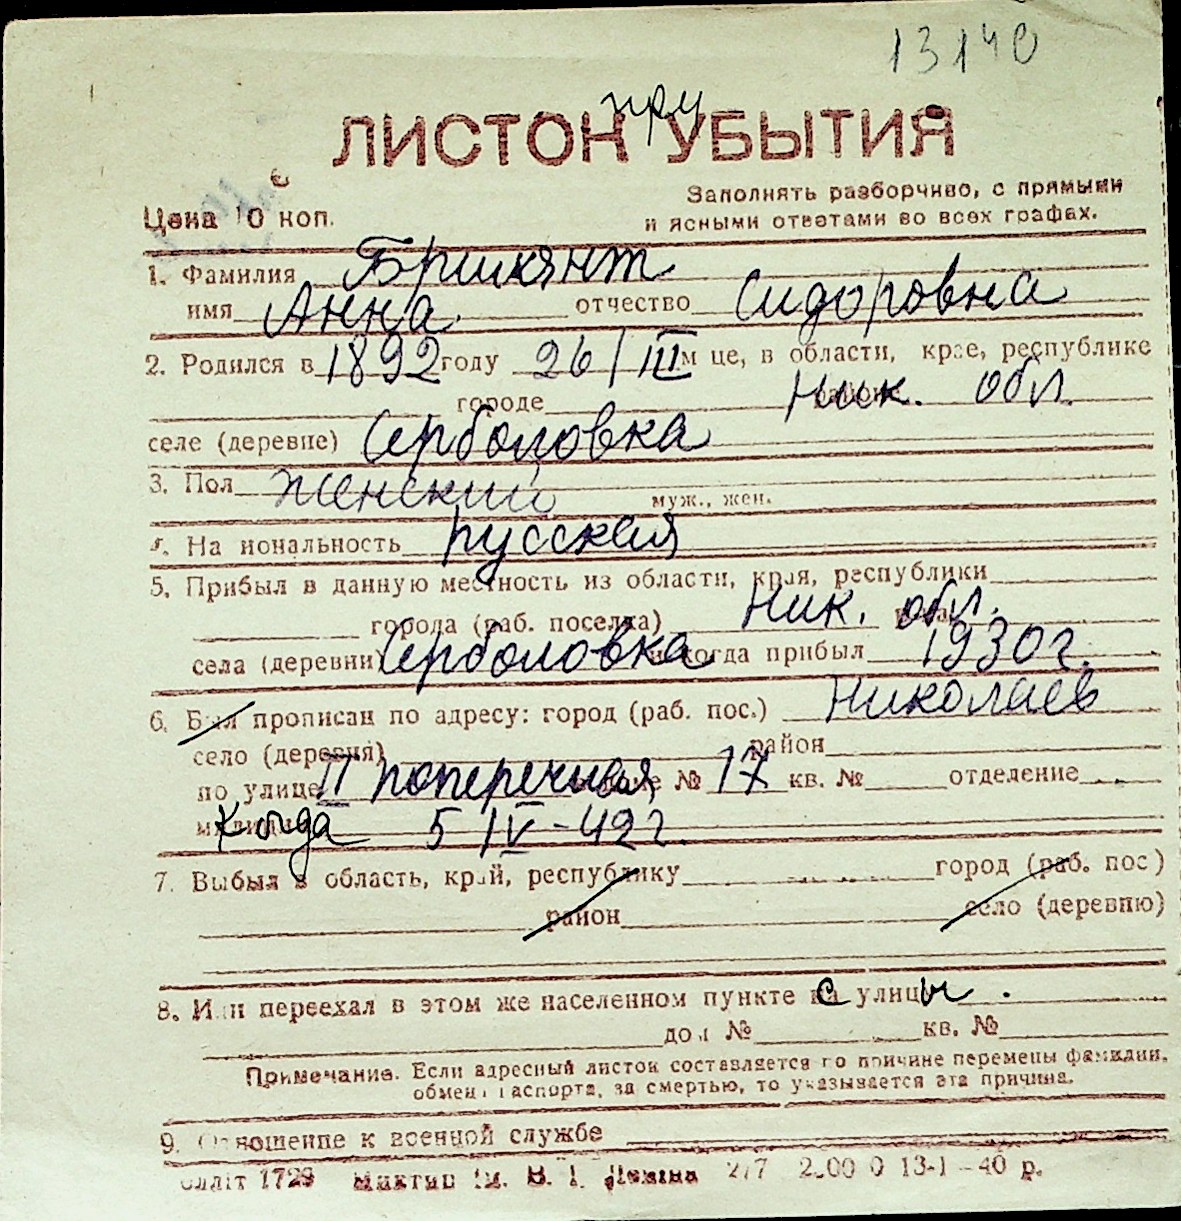 13140
при
ЛИСТОК УБЫТИЯ
Заполнять разборчиво, с прямыми
Цена 10 коп. и ясными ответами во всех графах.
1. Фамилия Бришкянт
имя Анна отчество Сидоровна
2. Родился в 1892 году 26/III м це, в области, крае, республике
городе Ник. обл.
селе (деревне) Серболовка
3. Пол женский муж., жен.
На иональность русская
5. Прибыл в данную местность из области, края, республики
города (раб. поселка) Ник. обл.
села (деревни) Серболовка когда прибыл 1930 г.
6. Был прописан по адресу: город (раб. пос.) Николаев
село (деревня) район
по улице II поперечная № 17 кв. № отделение
Когда 5/IV-42 г.
7. Выбыл в область, край, республику город (раб. пос)
район село (деревню)
8. Или переехал в этом же населенном пункте с улицы.
дом № кв. №
Примечание. Если адресный листок составляется по причине перемены фамилии,
обмена паспорта, за смертью, то указывается эта причина.
9. Отношение к военной службе
1729 В. Леніна 13-1-40 р.